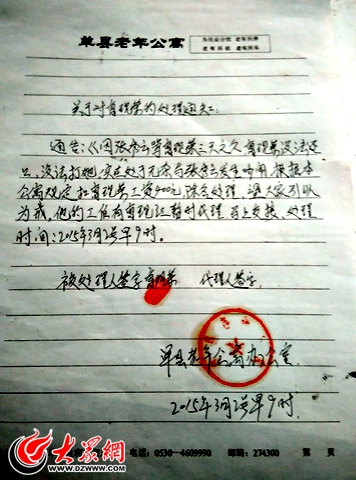 单县老年公寓
为社会分忧 老有所养
老有所依 老有所乐
关于对育现荣的处理通知:
通告:《因张秀云等育现荣三天之久育现荣没法还
口,没法打她,实在处于无奈与张秀云发生吵闹 根据本
公寓规定扣育现荣工资400元除名处理,望大家引以
为戒,他的工作有育现江暂时代理 马上交接,处理
时间:2015年3月2号早9时.
被处理人签字育现荣 代理人签字
单县老年公寓办公室
2015年3月2号早9时.
大众网
WWW.DZWWW.COM
电话:0530-4609990 邮编:274300 第 页